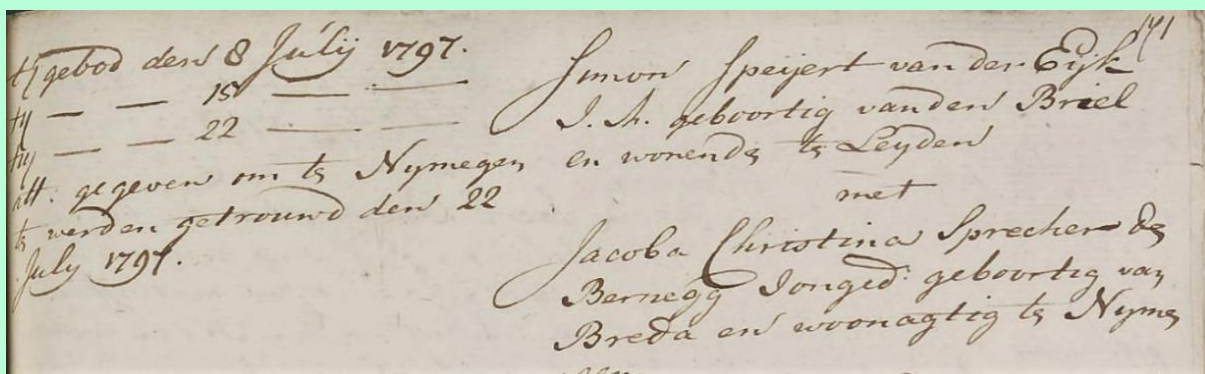 gebod den 8 Julij 1797.
— — 15 — —
— — 22 — —
att: gegeven om te Nymegen
te werden getrouwd den 22
July 1797.
141
Simon Speijert van der Eijk
J. M. geboortig van den Briel
en wonende te Leyden
met
Jacoba Christina Sprecher de
Bernegg Jonged: geboortig van
Breda en woonagtig te Nyme